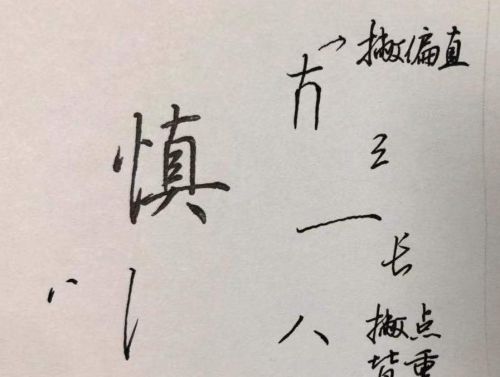 撇偏直
慎
三
一
长
八
撇点
皆重